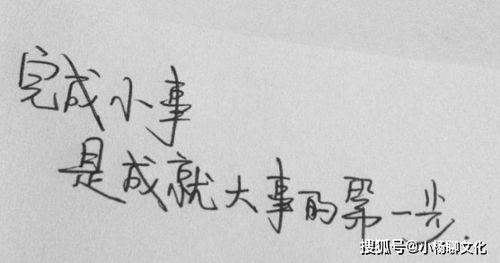 完成小事
是成就大事的第一步.
搜狐号@小杨聊文化